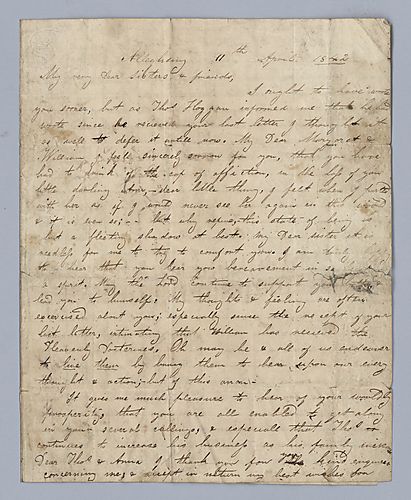 Allegheny 11th April 1842
My very Dear Sisters & friends,
I ought to have wrote
you sooner, but as Thos Hogg informed me that he
wrote since he recieved your last letter I thought it
as well to defer it untill now, My Dear Margaret &
William, I feel sincerely sorrow for you, that you have
had to drink of the cup of affliction, in the loss of your
little darling dear little thing, I felt when I parted
with her as if I would never see her again in this world
& it is even so, But why repine, this state of being is
but a fleeting shadow at best; My Dear sister it is
needless for me to try to comfort you I am
to hear that you bear your bereavement in
a spirit. May the Lord continue to support you &
led you to himself; My thoughts & feelings are often
exercised about you; especially since the receipt of your
last letter, intimating that William has received the
Heavenly Oh may he & all of us endeavor
to live them by having them to bear upon our every
thought & action; but of this anon -
It gives me much pleasure to hear of your worldly
prosperity, that you are all enabled to get along
in your several callings, & especially that Thos
continues to increase his business as his family
Dear Thos & Anna I thank you for kind enquiries
concerning me; & accept in return my best wishes for